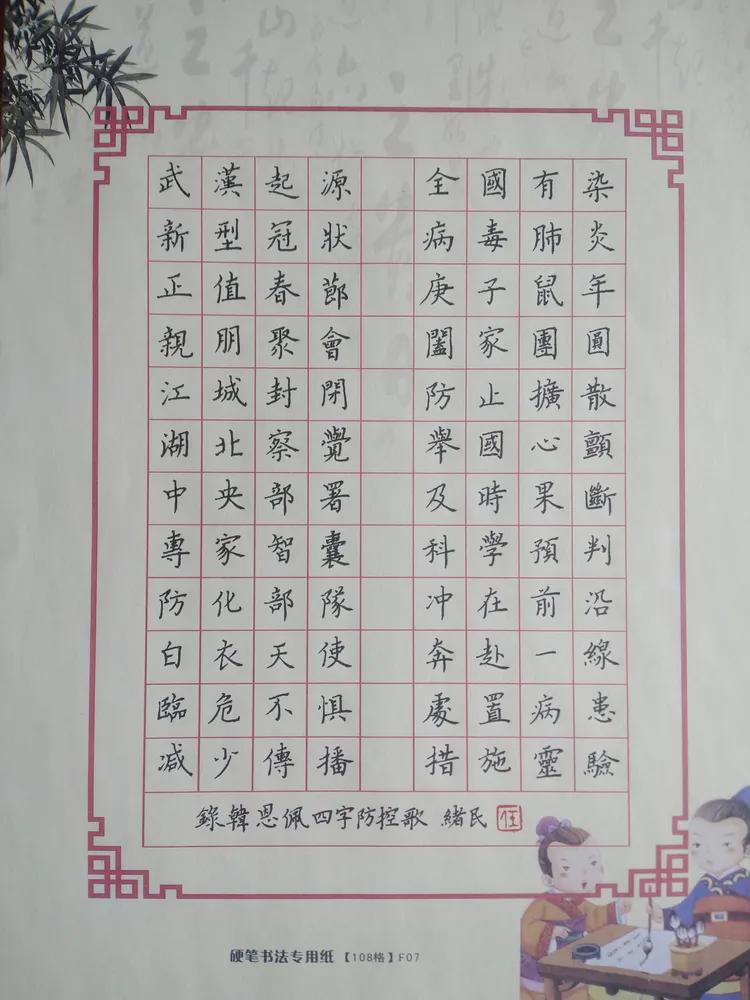 武漢起源 全國有染
新型冠狀 病毒肺炎
正值春節 庚子鼠年
親朋聚會 闔家團圓
江城封閉 防止擴散
湖北察覺 舉國心顫
中央部署 及時果斷
專家智囊 科學預判
防化部隊 冲在前沿
白衣天使 奔赴一線
臨危不惧 處置病患
减少傳播 措施靈驗
錄韓恩佩四字防控歌 緒民
硬笔书法专用纸【108格】F07